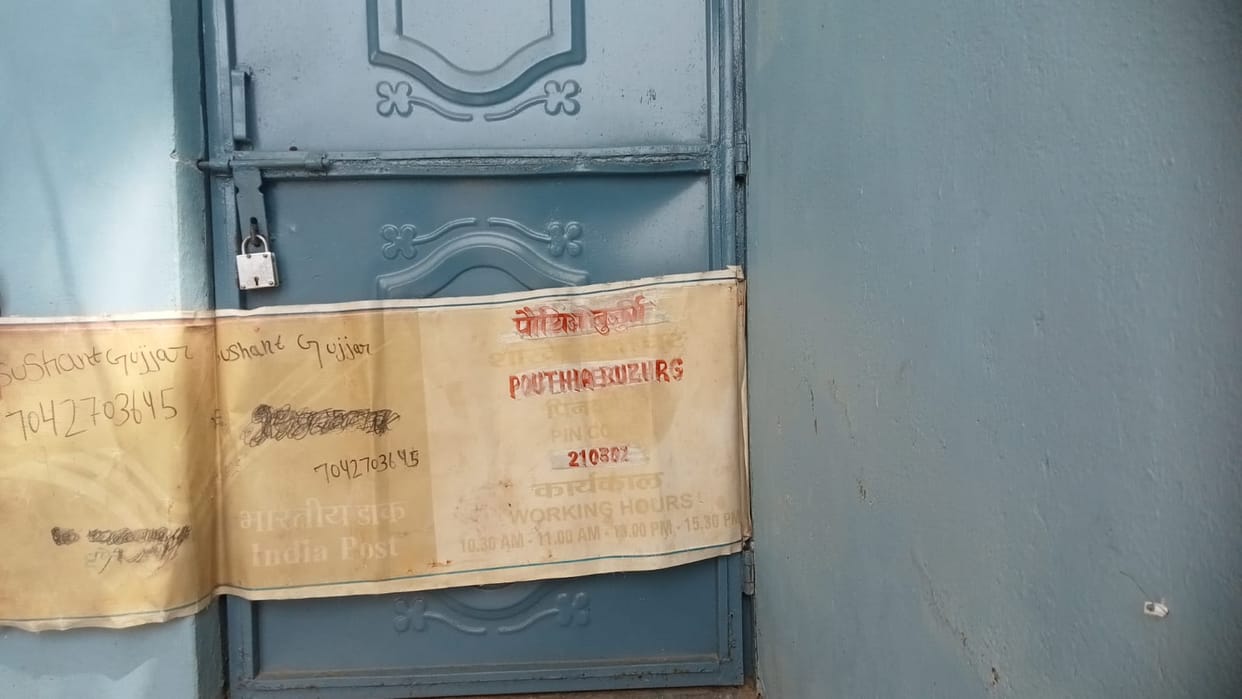 SuShant Gujjar
7042703645
SuShant Gujjar
7042703645
भारतीय डाक
India Post
पौथिया बुजुर्ग
POUTHIA BUZURG
PIN CO
210302
कार्यकाल
WORKING HOURS
10.30 AM - 11.00 AM - 13.00 PM - 15.30 PM